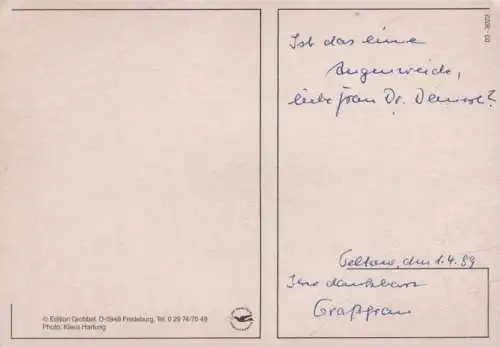 Ist das eine
Augenweide,
liebe Frau Dr.
Teltow, den 1.4.89
Ihre dankbare
© Edition Grobbel, D-5948 Fredeburg, Tel. 0 29 74/75 49
Photo: Klaus Hartung